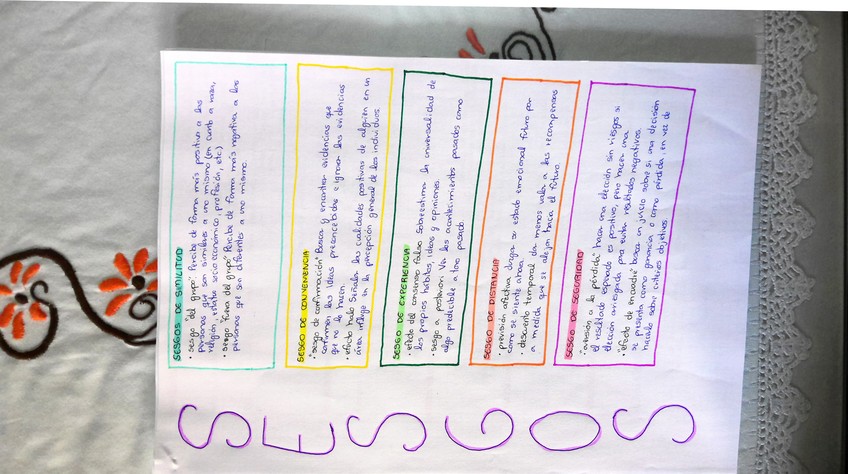 SESGOS
SESGOS DE SIMILITUD
· sesgo "del grupo": Percibe de forma más positiva a las
personas que son similares a uno mismo (en cuanto a raza,
religión, estatus socio económico, profesión, etc)
· sesgo "fuera del grupo" Percibe de forma más negativa a las
personas que son diferentes a uno mismo
SESGO DE CONVENIENCIA
· "sesgo de confirmación" busca y encontrar evidencias que
confirmen las ideas preconcebidas e ignorar las evidencias
que no lo hacen.
· efecto halo Señala las cualidades positivas de alguien en un
área influya en la percepción general de los individuos.
SESGO DE EXPERIENCIA
· efecto del consenso falso sobreestima la universalidad de
los propios hábitos, ideas y opiniones
· sesgo a posteriori Ve los acontecimientos pasados como
algo predecible a lo pasado.
SESGO DE DISTANCIA
· previsión afectiva Juzga su estado emocional futuro por
como se siente ahora
· descuento temporal da menos valor a las recompensas
a medida que se alejan hacia el futuro
SESGO DE SEGURIDAD
· "aversión a la pérdida" hacer una elección sin riesgos si
el resultado esperado es positivo, pero hacer una
elección arriesgada para evitar resultados negativos.
· "efecto de encuadre" basa un juicio sobre si una decisión
se presenta como ganancia o como pérdida, en vez de
hacerlo sobre criterios objetivos